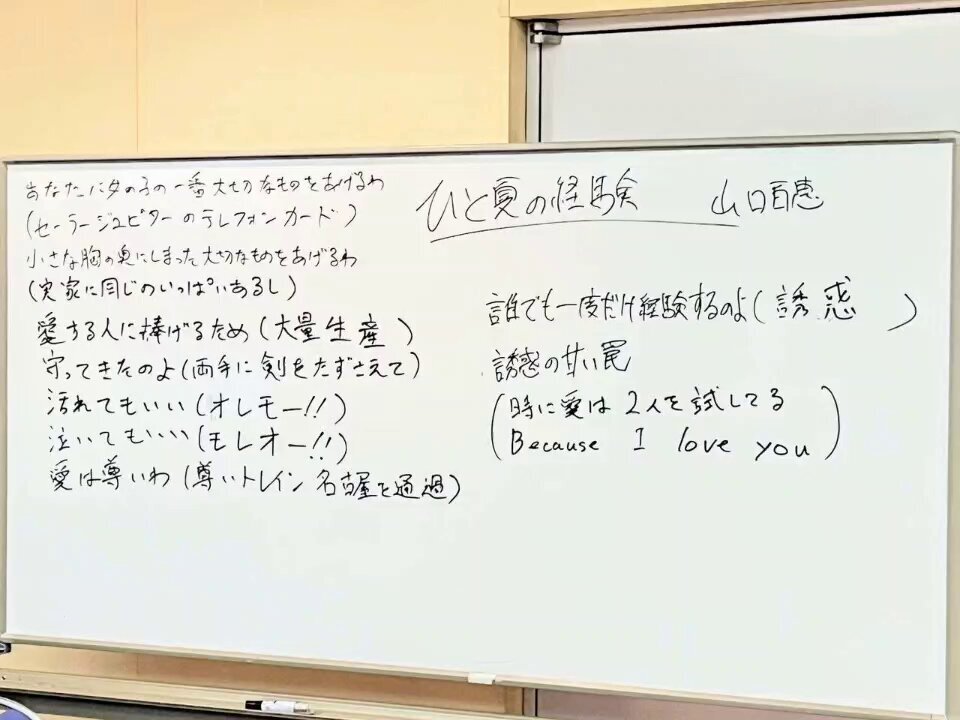 ひと夏の経験 山口百恵
あなたに女の子の一番大切なものをあげるわ
(セーラージュピターのテレフォンカード)
小さな胸の奥にしまった大切なものをあげるわ
(実家に同じのいっぱいあるし)
愛する人に捧げるため(大量生産)
守ってきたのよ(両手に剣をたずさえて)
汚れてもいい(オレモー!!)
泣いてもいい(モレオー!!)
愛は尊いわ(尊いトレイン 名古屋を通過)
誰でも一度だけ経験するのよ(誘惑)
誘惑の甘い罠
(時に愛は2人を試してる
Because I love you)